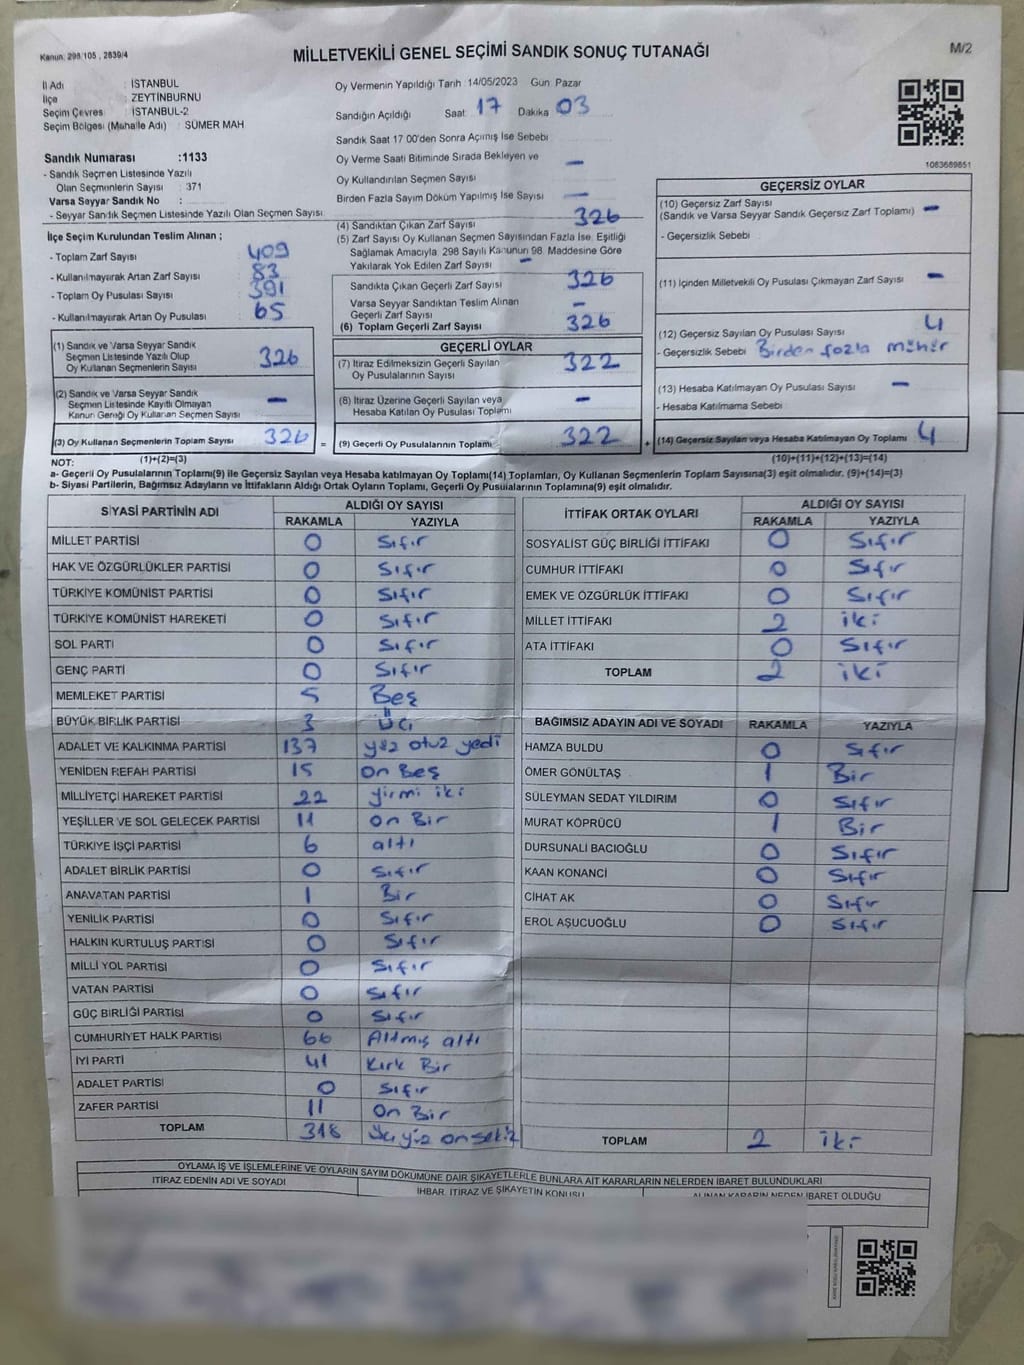 Kanun: 298/105 , 2839/4
MİLLETVEKİLİ GENEL SEÇİMİ SANDIK SONUÇ TUTANAĞI
M/2
İl Adı : İSTANBUL
İlçe : ZEYTİNBURNU
Seçim Çevres : İSTANBUL-2
Seçim Bölgesi (Mahalle Adı) : SÜMER MAH
Sandık Numarası :1133
- Sandık Seçmen Listesinde Yazılı
Olan Seçmenlerin Sayısı : 371
Varsa Seyyar Sandık No :
- Seyyar Sandık Seçmen Listesinde Yazılı Olan Seçmen Sayısı
İlçe Seçim Kurulundan Teslim Alınan ;
- Toplam Zarf Sayısı : 409
- Kullanılmayarak Artan Zarf Sayısı : 83
- Toplam Oy Pusulası Sayısı : 391
- Kullanılmayarak Artan Oy Pusulası : 65
(1) Sandık ve Varsa Seyyar Sandık
Seçmen Listesinde Yazılı Olup
Oy Kullanan Seçmenlerin Sayısı 326
(2) Sandık ve Varsa Seyyar Sandık
Seçmen Listesinde Kayıtlı Olmayan
Kanun Gereği Oy Kullanan Seçmen Sayısı –
(3) Oy Kullanan Seçmenlerin Toplam Sayısı 326 =
(1)+(2)=(3)
Oy Vermenin Yapıldığı Tarih :14/05/2023 Gün: Pazar
Sandığın Açıldığı Saat 17 Dakika 03
Sandık Saat 17 00'den Sonra Açılmış İse Sebebi
Oy Verme Saati Bitiminde Sırada Bekleyen ve –
Oy Kullandırılan Seçmen Sayısı
Birden Fazla Sayım Döküm Yapılmış İse Sayısı –
(4) Sandıktan Çıkan Zarf Sayısı 326
(5) Zarf Sayısı Oy Kullanan Seçmen Sayısından Fazla İse, Eşitliği
Sağlamak Amacıyla, 298 Sayılı Kanunun 98. Maddesine Göre
Yakılarak Yok Edilen Zarf Sayısı –
Sandıkta Çıkan Geçerli Zarf Sayısı 326
Varsa Seyyar Sandıktan Teslim Alınan
Geçerli Zarf Sayısı –
(6) Toplam Geçerli Zarf Sayısı 326
GEÇERLİ OYLAR
(7) İtiraz Edilmeksizin Geçerli Sayılan
Oy Pusulalarının Sayısı 322
(8) İtiraz Üzerine Geçerli Sayılan veya
Hesaba Katılan Oy Pusulası Toplamı –
(9) Geçerli Oy Pusulalarının Toplamı 322 +
1063689851
GEÇERSİZ OYLAR
(10) Geçersiz Zarf Sayısı
(Sandık ve Varsa Seyyar Sandık Geçersiz Zarf Toplamı) –
- Geçersizlik Sebebi
(11) İçinden Milletvekili Oy Pusulası Çıkmayan Zarf Sayısı –
(12) Geçersiz Sayılan Oy Pusulası Sayısı 4
- Geçersizlik Sebebi Birden fazla mühür
(13) Hesaba Katılmayan Oy Pusulası Sayısı –
- Hesaba Katılmama Sebebi
(14) Geçersiz Sayılan veya Hesaba Katılmayan Oy Toplamı 4
(10)+(11)+(12)+(13)=(14)
NOT:
a- Geçerli Oy Pusulalarının Toplamı(9) ile Geçersiz Sayılan veya Hesaba katılmayan Oy Toplamı(14) Toplamları, Oy Kullanan Seçmenlerin Toplam Sayısına(3) eşit olmalıdır. (9)+(14)=(3)
b- Siyasi Partilerin, Bağımsız Adayların ve İttifakların Aldığı Ortak Oyların Toplamı, Geçerli Oy Pusulalarının Toplamına(9) eşit olmalıdır.
SİYASİ PARTİNİN ADI ALDIĞI OY SAYISI
RAKAMLA YAZIYLA
MİLLET PARTİSİ 0 Sıfır
HAK VE ÖZGÜRLÜKLER PARTİSİ 0 Sıfır
TÜRKİYE KOMÜNİST PARTİSİ 0 Sıfır
TÜRKİYE KOMÜNİST HAREKETİ 0 Sıfır
SOL PARTİ 0 Sıfır
GENÇ PARTİ 0 Sıfır
MEMLEKET PARTİSİ 5 Beş
BÜYÜK BİRLİK PARTİSİ 3 Üç
ADALET VE KALKINMA PARTİSİ 137 yüz otuz yedi
YENİDEN REFAH PARTİSİ 15 on Beş
MİLLİYETÇİ HAREKET PARTİSİ 22 yirmi iki
YEŞİLLER VE SOL GELECEK PARTİSİ 11 on Bir
TÜRKİYE İŞÇİ PARTİSİ 6 altı
ADALET BİRLİK PARTİSİ 0 Sıfır
ANAVATAN PARTİSİ 1 Bir
YENİLİK PARTİSİ 0 Sıfır
HALKIN KURTULUŞ PARTİSİ 0 Sıfır
MİLLİ YOL PARTİSİ 0 Sıfır
VATAN PARTİSİ 0 Sıfır
GÜÇ BİRLİĞİ PARTİSİ 0 Sıfır
CUMHURİYET HALK PARTİSİ 66 Altmış altı
İYİ PARTİ 41 Kırk Bir
ADALET PARTİSİ 0 Sıfır
ZAFER PARTİSİ 11 On Bir
TOPLAM 318 Üçyüz onsekiz
İTTİFAK ORTAK OYLARI ALDIĞI OY SAYISI
RAKAMLA YAZIYLA
SOSYALİST GÜÇ BİRLİĞİ İTTİFAKI 0 Sıfır
CUMHUR İTTİFAKI 0 Sıfır
EMEK VE ÖZGÜRLÜK İTTİFAKI 0 Sıfır
MİLLET İTTİFAKI 2 iki
ATA İTTİFAKI 0 Sıfır
TOPLAM 2 iki
BAĞIMSIZ ADAYIN ADI VE SOYADI RAKAMLA YAZIYLA
HAMZA BULDU 0 Sıfır
ÖMER GÖNÜLTAŞ 1 Bir
SÜLEYMAN SEDAT YILDIRIM 0 Sıfır
MURAT KÖPRÜCÜ 1 Bir
DURSUNALİ BACIOĞLU 0 Sıfır
KAAN KONANCİ 0 Sıfır
CİHAT AK 0 Sıfır
EROL AŞUCUOĞLU 0 Sıfır
TOPLAM 2 iki
OYLAMA İŞ VE İŞLEMLERİNE VE OYLARIN SAYIM DÖKÜMÜNE DAİR ŞİKAYETLERLE BUNLARA AİT KARARLARIN NELERDEN İBARET BULUNDUKLARI
İTİRAZ EDENİN ADI VE SOYADI İHBAR, İTİRAZ VE ŞİKAYETİN KONUSU ALINAN KARARIN NEDEN İBARET OLDUĞU